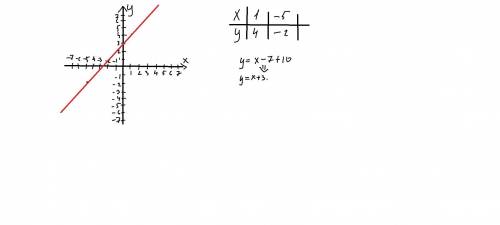 y
7
6
5
4
3
2
1
-7 -6 -5 -4 -3 -2 -1
x
1 2 3 4 5 6 7
-1
-2
-3
-4
-5
-6
-7
x 1 -5
y 4 -2
y= x-7+10
⇓
y=x+3.